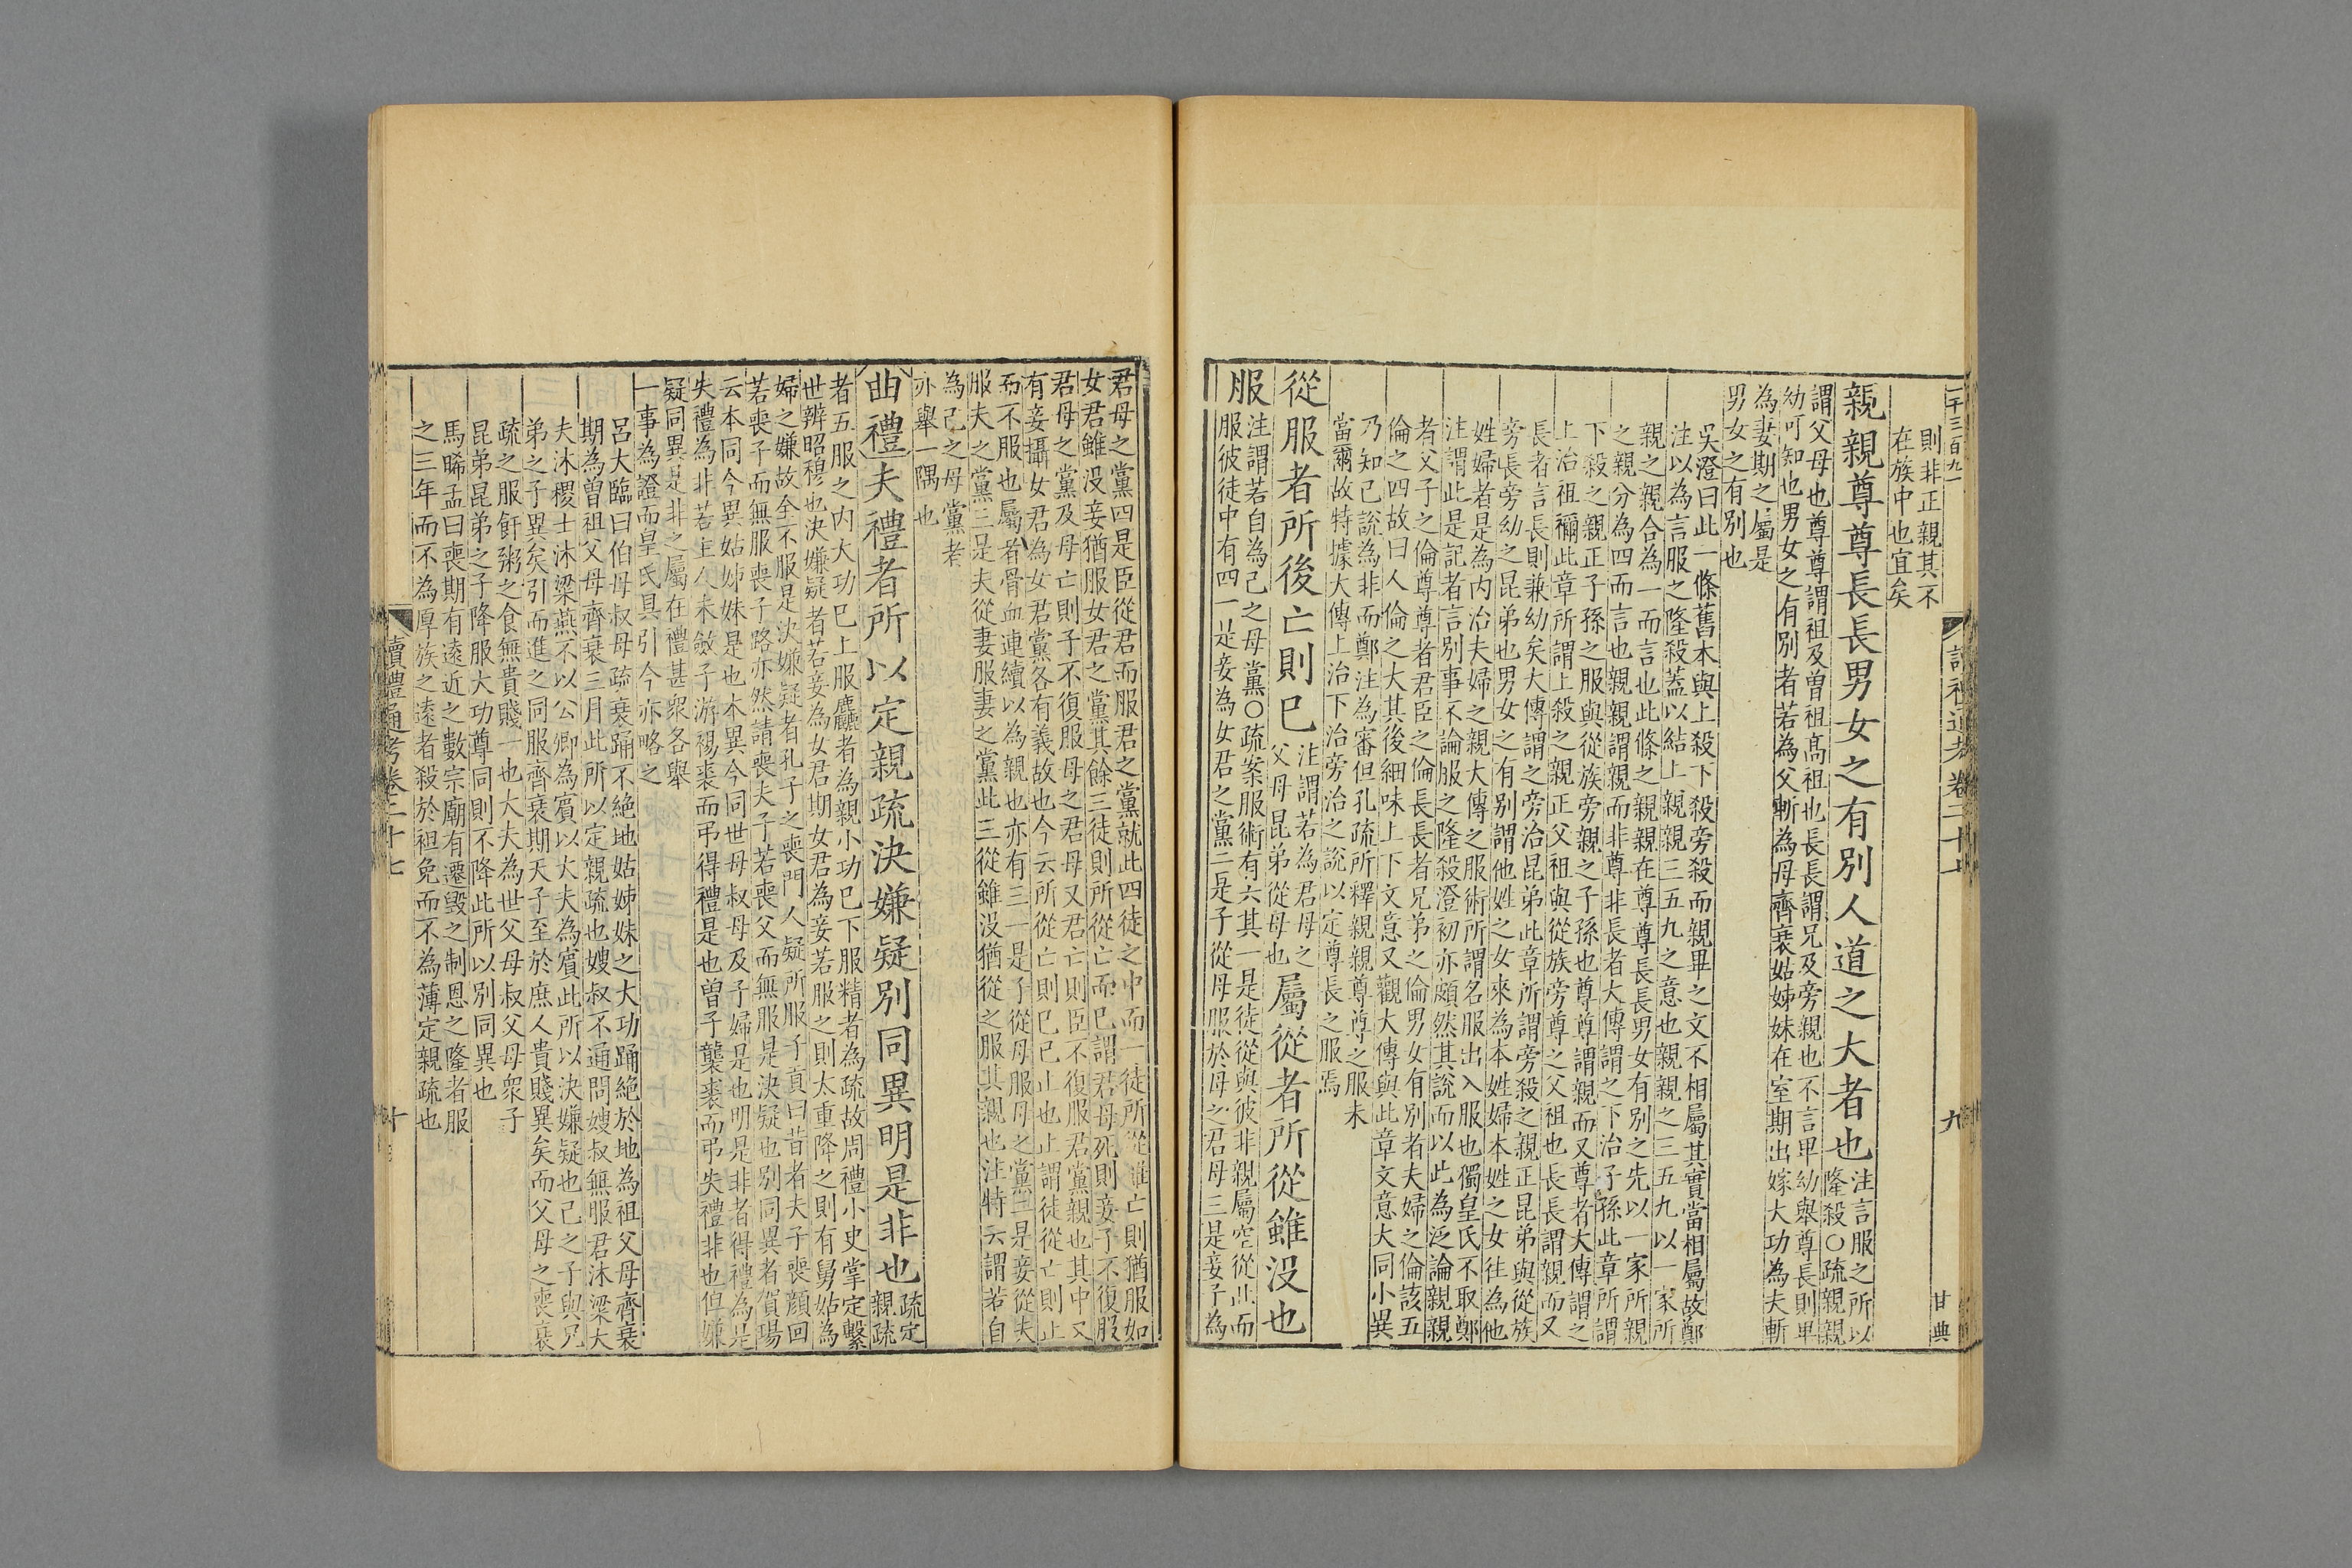 一千三百九一
讀禮通考卷三十七
九
甘典
則非正親其不
在族中也宜矣
親親尊尊長長男女之有別人道之大者也
注言服之所以
隆殺○疏親親
謂父母也尊尊謂祖及曾祖高祖也長長謂兄及旁親也不言卑幼舉尊長則卑
幼可知也男女之有別者若為父斬為母齊衰姑姊妹在室期出嫁大功為夫斬
為妻期之屬是
男女之有別也
吳澄曰此一條舊本與上殺下殺旁殺而親畢之文不相屬其實當相屬故鄭
注以為言服之隆殺蓋以結上親親三五九之意也親親之三五九以一家所
親之親合為一而言也此條之親親在尊尊長長男女有別之先以一家所親
之親分為四而言也親親謂親而非尊非長者大傳謂之下治子孫此章所謂
下殺之親正子孫之服與從族旁親之子孫也尊尊謂親而又尊者大傳謂之
上治祖禰此章所謂上殺之親正父祖與從族旁尊之父祖也長長謂親而又
長者言長則兼幼矣大傳謂之旁治昆弟此章所謂旁殺之親正昆弟與從族
旁長旁幼之昆弟也男女之有別謂他姓之女來為本姓婦本姓之女往為他
姓婦者是為內治夫婦之親大傳之服術所謂名服出入服也獨皇氏不取鄭
注謂此是記者言別事不論服之隆殺澄初亦頗然其說而以此為泛論親親
者父子之倫尊尊者君臣之倫長長者兄弟之倫男女有別者夫婦之倫該五
倫之四故曰人倫之大其後細味上下文意又觀大傳與此章文意大同小異
乃知己說為非而鄭注為審但孔疏所釋親親尊尊之服未
當爾故特據大傳上治下治旁治之說以定尊長之服焉
從服者所後亡則已
注謂若為君母之
父母昆弟從母也
屬從者所從雖沒也
服
注謂若自為己之母黨○疏案服術有六其一是徒從與彼非親屬空從此而
服彼徒中有四一是妾為女君之黨二是子從母服於母之君母三是妾子為
君母之黨四是臣從君而服君之黨就此四徒之中而一徒所從雖亡則猶服如
女君雖沒妾猶服女君之黨其餘三徒則所從亡而已謂君母死則妾子不復服
君母之黨及母亡則子不復服母之君母又君亡則臣不復服君黨親也其中又
有妾攝女君為女君黨各有義故也今云所從亡則已已止也止謂徒從亡則止
而不服也屬者骨血連續以為親也亦有三一是子從母服母之黨二是妾從夫
服夫之黨三是夫從妻服妻之黨此三從雖沒猶從之服其親也注特云謂若自
為己之母黨者
亦舉一隅也
曲禮夫禮者所以定親疏決嫌疑別同異明是非也
疏定
親疏
者五服之內大功已上服麤者為親小功已下服精者為疏故周禮小史掌定繫
世辨昭穆也決嫌疑者若妾為女君期女君為妾若服之則太重降之則有舅姑為
婦之嫌故全不服是決嫌疑者孔子之喪門人疑所服子貢曰昔者夫子喪顏回
若喪子而無服喪子路亦然請喪夫子若喪父而無服是決疑也別同異者賀瑒
云本同今異姑姊妹是也本異今同世母叔母及子婦是也明是非者得禮為是
失禮為非若主人未斂子游裼裘而弔得禮是也曾子襲裘而弔失禮非也但嫌
疑同異是非之屬在禮甚眾各舉
一事為證而皇氏具引今亦略之
呂大臨曰伯母叔母疏衰踊不絕地姑姊妹之大功踊絕於地為祖父母齊衰
期為曾祖父母齊衰三月此所以定親疏也嫂叔不通問嫂叔無服君沐粱大
夫沐稷士沐粱燕不以公卿為賓以大夫為賓此所以決嫌疑也己之子與兄
弟之子異矣引而進之同服齊衰期天子至於庶人貴賤異矣而父母之喪齊衰
疏之服飦粥之食無貴賤一也大夫為世父母叔父母眾子
昆弟昆弟之子降服大功尊同則不降此所以別同異也
馬晞孟曰喪期有遠近之數宗廟有遷毀之制恩之隆者服
之三年而不為厚族之遠者殺於袒免而不為薄定親疏也
讀禮通考卷三十七
十